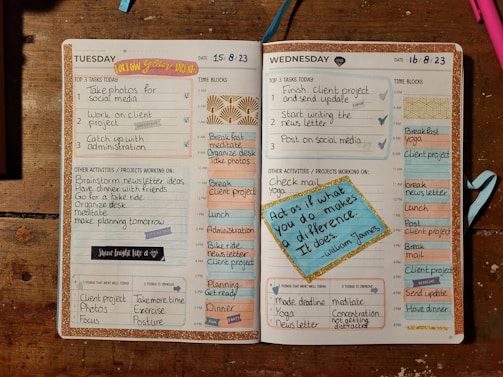 TUESDAY
DATE 15.8.23
TOP 3 TASKS TODAY
1 Take photos for
social media
2 Work on client
project
3 Catch up with
administration
OTHER ACTIVITIES / PROJECTS WORKING ON:
Brainstorm newsletter ideas
Have dinner with friends
Go for a bike ride
Organize desk
meditate
make planning tomorrow
Shine bright like a
3 THINGS THAT WENT WELL TODAY
Client project
Photos
Focus
3 THINGS TO IMPROVE
Take more time
Exercise
Posture
TIME BLOCKS
Breakfast
meditate
Organize desk
Take photos
Break
client project
Lunch
Administration
Bike ride
newsletter
Client project
Planning
Get ready
Dinner
WEDNESDAY
DATE 16.8.23
TOP 3 TASKS TODAY
1 Finish client project
and send update
2 Start writing the
news letter
3 Post on social media
OTHER ACTIVITIES / PROJECTS WORKING ON:
Check mail
yoga
Act as if what
you do makes
a difference.
It does.
-William James
3 THINGS THAT WENT WELL TODAY
Made deadline
Yoga
News letter
3 THINGS TO IMPROVE
mediate
Concentration
not getting
distracted
TIME BLOCKS
Breakfast
yoga
Client project
break
news letter
Lunch
Post
client project
Break
mail
Client project
Send update
Have dinner